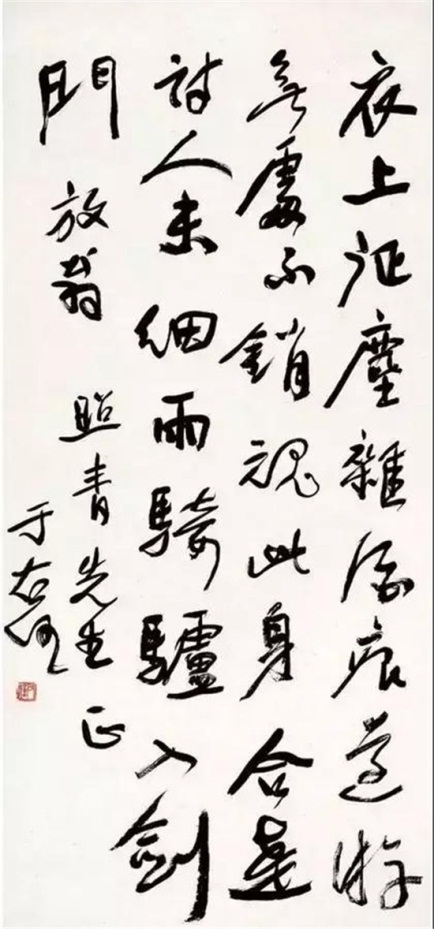 衣上征塵雜酒痕遠游
無處不銷魂此身合是
詩人未細雨騎驢入劍
門 放翁
照青先生正
于右任